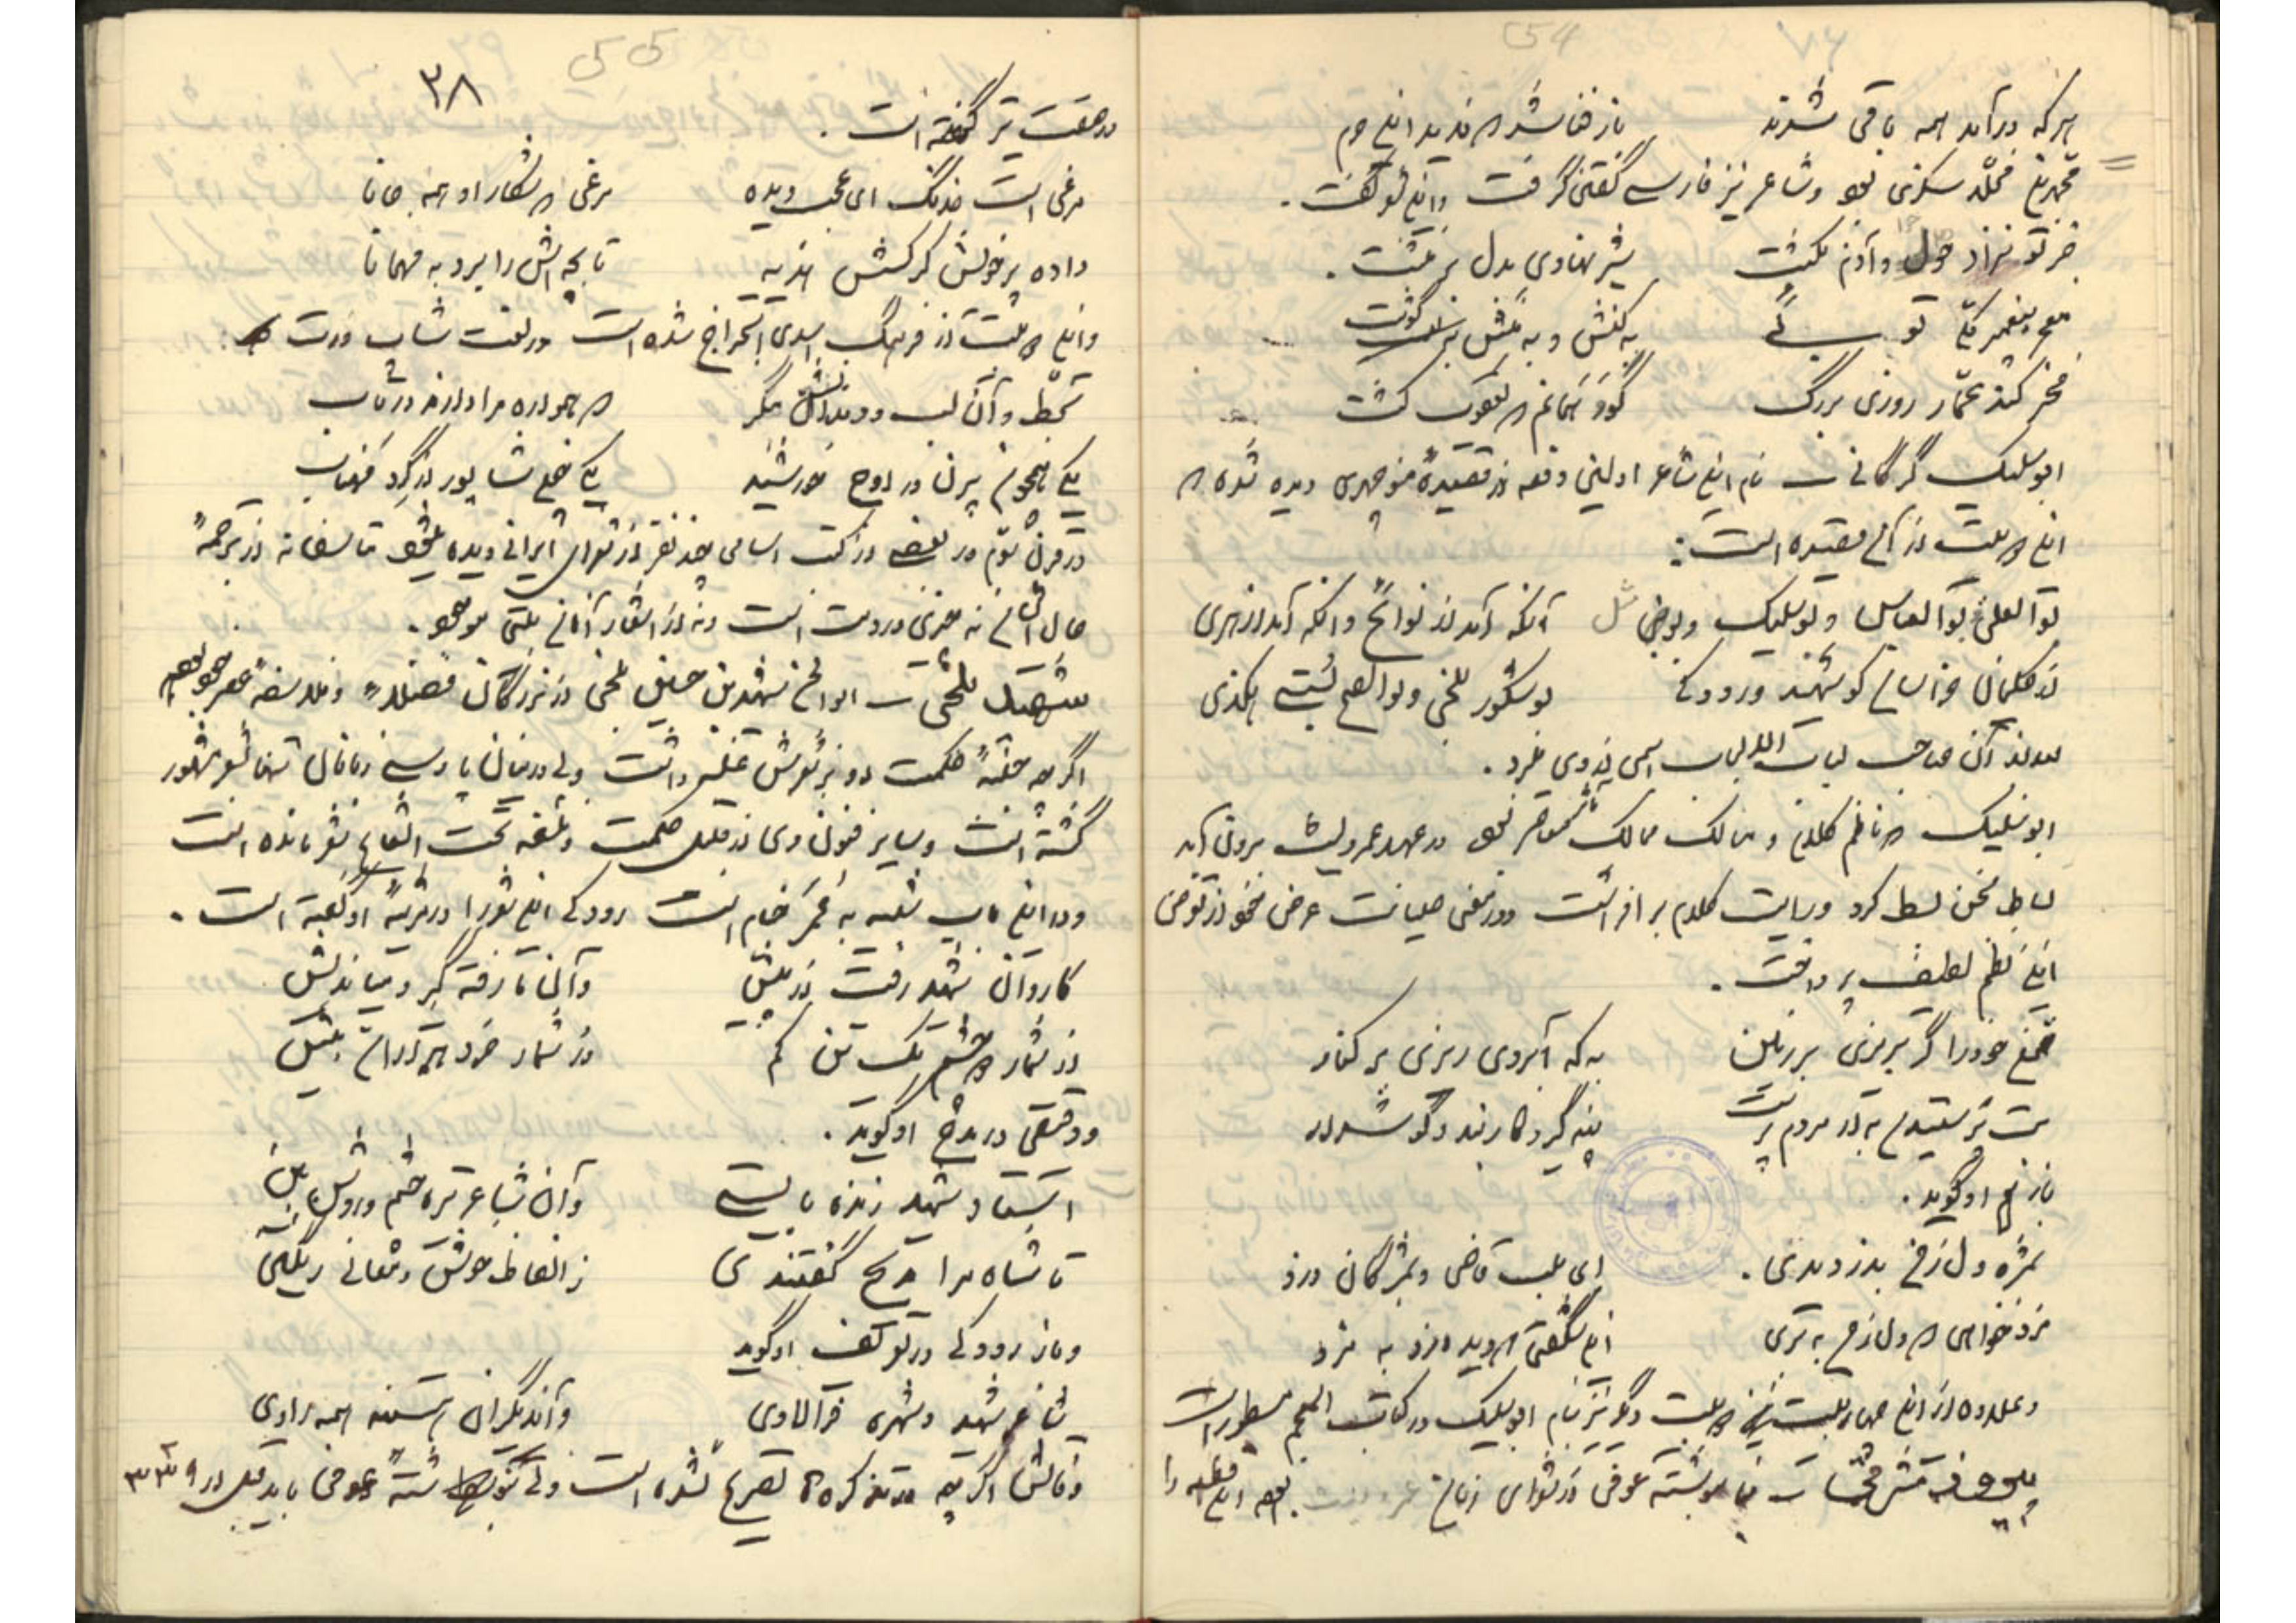 54
هر که درآمد همه باقی شدند	باز فنا شد که ندید این حرم
محمد بن مخلد سکزی بود و شاعر نیز فارسی گفتن گرفت و این شعر گفت.
جز تو نزاد حوا و آدم نکشت	شیر نهادی بدل و بر منشت.
معجز پیغمبر مکی توئی	به کنش و به منش و به گوشت
فخر کند عمار روزی بزرگ	گوید آنم که یعقوب کشت
ابوسلیک گرگانی – نام این شاعر اولین دفعه در قصیدهٔ منوچهری دیده شده که
این دو بیت از آن قصیده است:
بوالعلی و بوالعباس و بوسلیک و بوالمثل	آنکه آمد از نوایح وانکه آمد از هری
از حکیمان خراسان کو شهید و رودکی	بوشکور بلخی و بوالفتح بستی هکذی
بعد از آن صاحب لباب الالباب اسمی از وی برد.
ابوسلیک که ناظم کلام و سالک ممالک بود در عهد عمرو لیث بیرون آمد
بساط سخن بسط کرد و رایت کلام بر افراشت و در معنی صیانت عرض خود از تعرض
این نظم لطیف پرداخت.
خون خود را گر بریزی بر زمین	به که آبروی ریزی بر کنار
بت پرستیدن به از مردم پرست	پند گیر و کار بند و گوش دار
باز هم او گوید.
بمژه دل ز من بدزدیدی.	ای بلب قاضی و بمژگان دزد
مزد خواهی که دل ز من ببری	این شگفتی که دیده دزد به مزد
و علاوه از این چهار بیت دو بیت دیگر نیز بنام ابوسلیک در کتاب المعجم مسطور است
فیروز مشرقی – بنا بنوشتهٔ عوفی از شعرای زمان عمرو لیث بود این قطعه را
55
۳۸
در صفت تیر گفته است.
مرغی است خدنگ ای عجب دیده	مرغی که شکار او همه جانا
داده پر خویش کرکسش هدیه	تا بچه‌اش را برد به مهمانا
و این دو بیت از فرهنگ اسدی استخراج شده است در لغت شاب درت:
بخط و آن لب و دندانش بنگر	که همواره مرا دارند در تاب
یکی همچون پرن در اوج خورشید	یکی چون شاپور از گرد مهتاب
در قرن سوم در بعضی از کتب اسامی چند نفر از شعرای ایرانی دیده میشود متاسفانه از ترجمهٔ
حال آنان نه چیزی در دست است و نه از اشعار آنان بیتی موجود.
شهید بلخی – ابوالحسن شهید بن حسین بلخی از بزرگان فضلاء و فلاسفهٔ عصر خود بوده
اگر چه جنبهٔ حکمت او بر شعرش غلبه داشت ولی در میان پارسی زبانان تنها بشعر مشهور
گشته است و سایر فنون وی از قبیل حکمت و فلسفه تحت الشعاع شعر مانده است
و در این باب شبیه به عمر خیام است رودکی این شعر را در مرثیهٔ او گفته است.
کاروان شهید رفت از پیش	وآن ما رفته گیر و میاندیش
از شمار دو چشم یک تن کم	وز شمار خرد هزاران بیش
و دقیقی در مدح او گوید.
استاد شهید زنده بایستی	وآن شاعر تیره چشم روشن بین
تا شاه مرا مدیح گفتندی	ز الفاظ خوش و معانی رنگین
و باز رودکی در توصیف او گوید
شاعر شهید و شهره فرالاوی	وآن دیگران بجمله همه راوی
وفاتش اگر چه در تذکره‌ها تصریح نشده است ولی بنوشتهٔ عوفی باید قبل از ۳۲۹